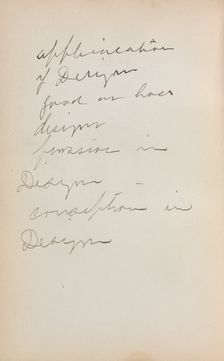 application
of Design
good or bad
design
passion in
Design –
conception in
Design